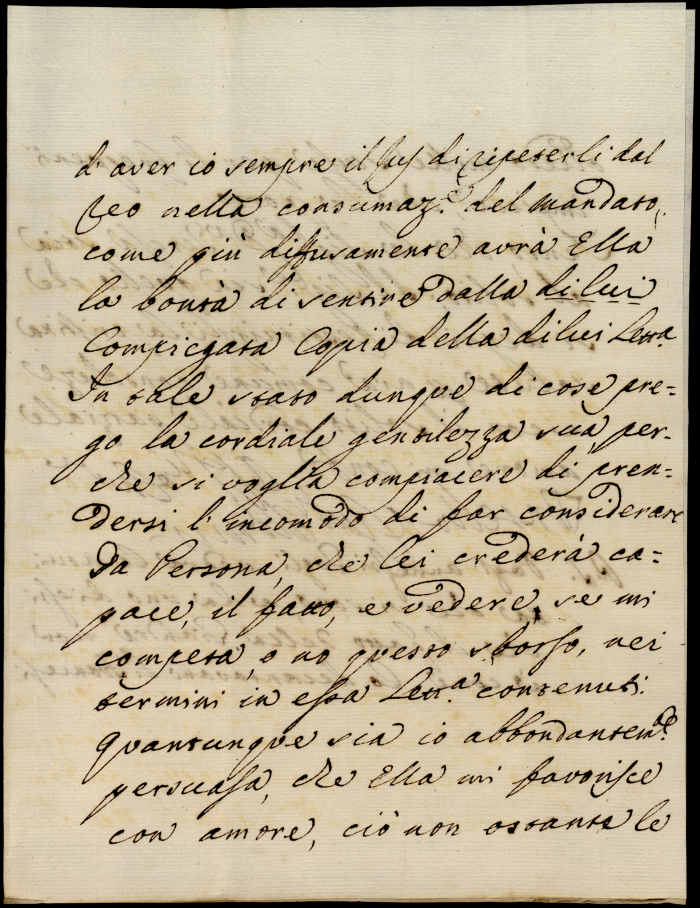 d'aver io sempre il Jus di ripeterli dal
Reo nella consumaz.e del mandato,
come più diffusamente avrà Ella
la bontà di sentire dalla di lui
compiegata Copia della di lui Lett.a
In tale stato dunque di cose pre=
go la cordiale gentilezza sua, per=
che si voglia compiacere di pren=
dersi l'incomodo di far considerare
Da Persona, che lei crederà ca=
pace, il fatto, e vedere, se mi
competa, o no questo sborso, nei
termini in essa Lett.a contenuti.
Quantunque sia io abbondantem.e
persuasa, che Ella mi favorisce
con amore, ciò non ostante le